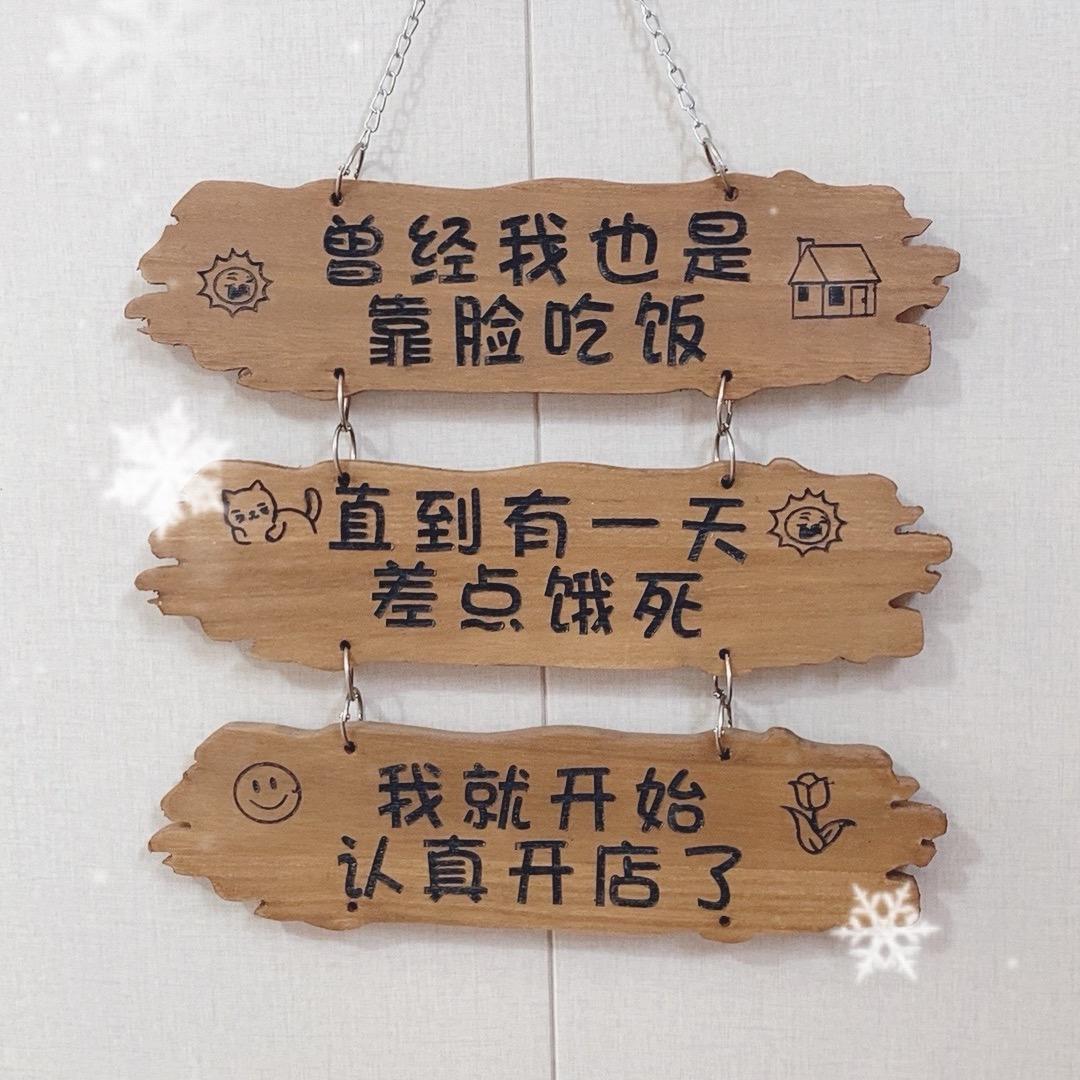 曾经我也是
靠脸吃饭
直到有一天
差点饿死
我就开始
认真开店了